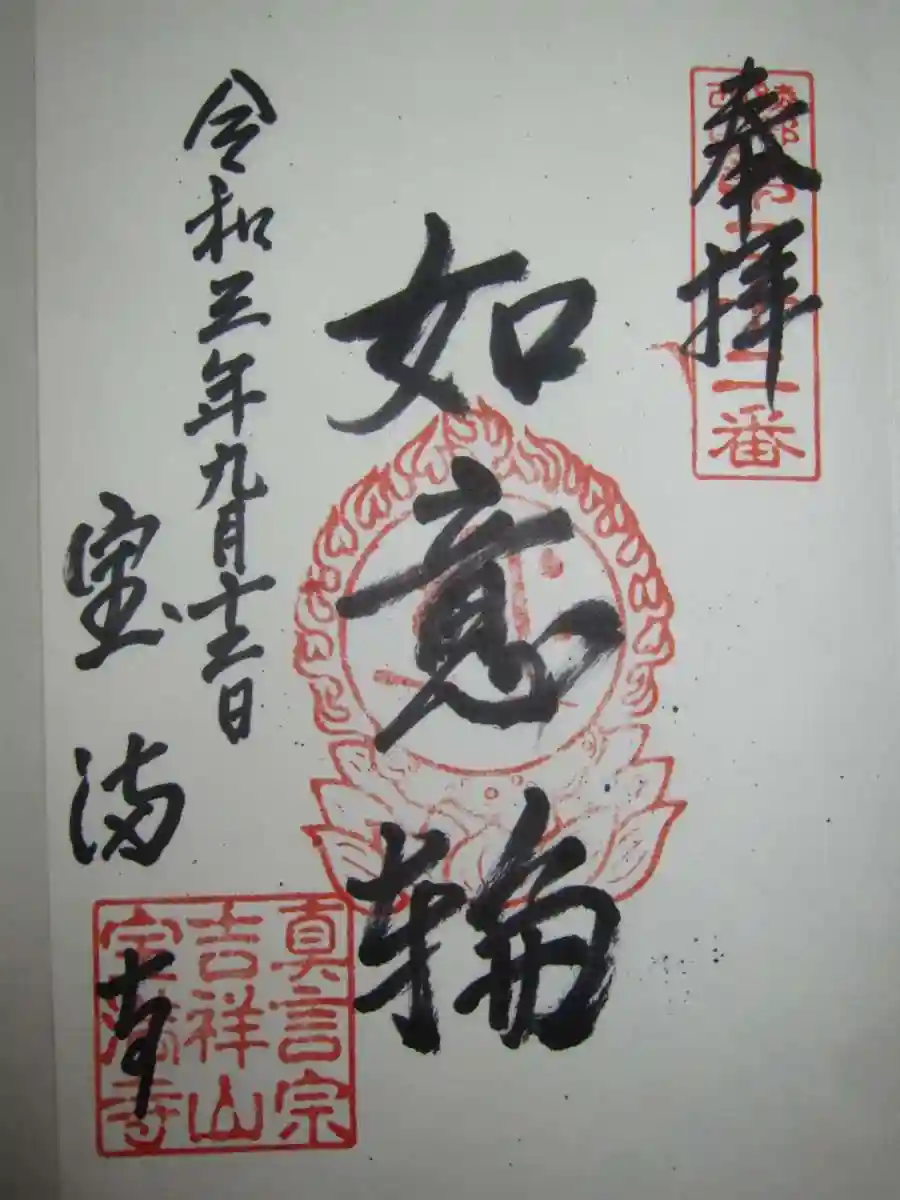 奉拝
番
如意輪
令和三年九月十二日
宝満寺
真言宗
吉祥山
宝満寺